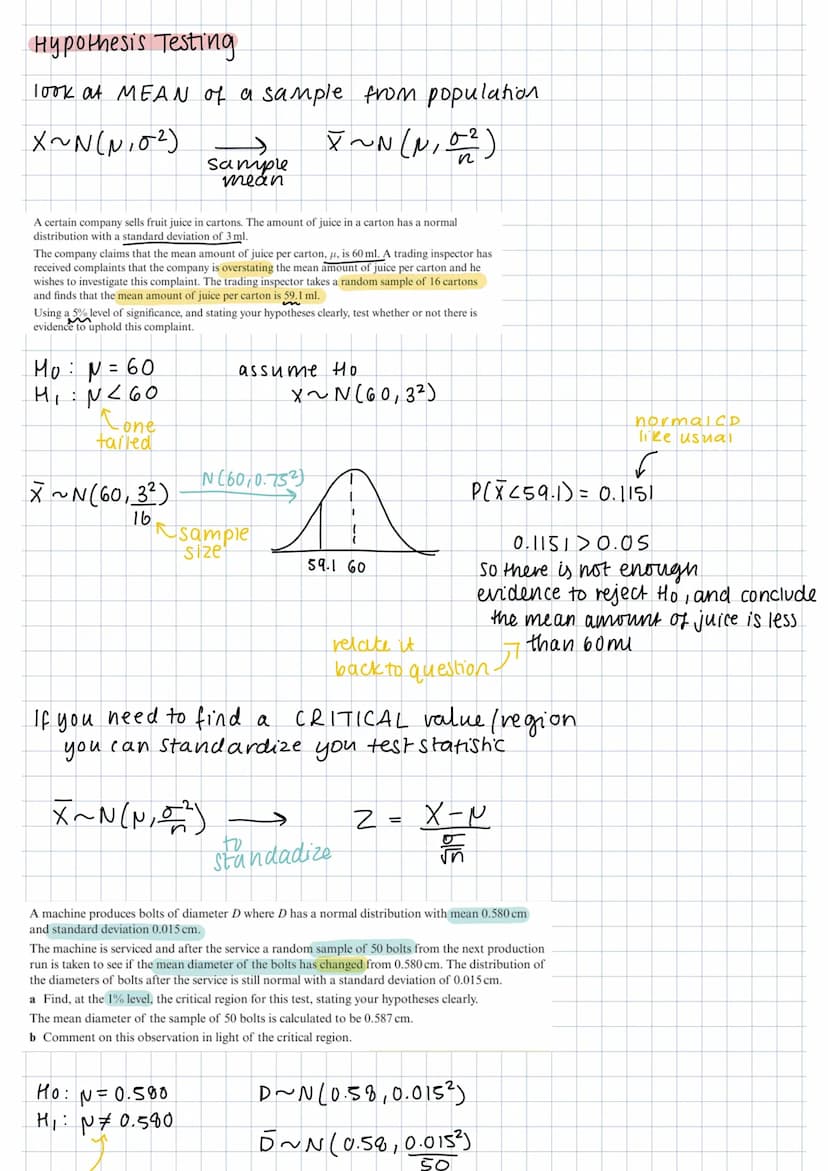 Hypothesis Testing
look at MEAN of a sample from population
X~N(μ,σ²) → X̄~N(μ, σ²/n)
sample
mean
A certain company sells fruit juice in cartons. The amount of juice in a carton has a normal
distribution with a standard deviation of 3 ml.
The company claims that the mean amount of juice per carton, μ, is 60 ml. A trading inspector has
received complaints that the company is overstating the mean amount of juice per carton and he
wishes to investigate this complaint. The trading inspector takes a random sample of 16 cartons
and finds that the mean amount of juice per carton is 59.1 ml.
Using a 5% level of significance, and stating your hypotheses clearly, test whether or not there is
evidence to uphold this complaint.
H₀: μ = 60
H₁: μ < 60
one
tailed
assume H₀
X~N(60, 3²)
X̄~N(60, 3²/16)
sample
size
N(60, 0.75²)
59.1 60
normalCD
like usual
P(X̄<59.1) = 0.1151
0.1151 > 0.05
so there is not enough
evidence to reject H₀, and conclude
the mean amount of juice is less
than 60ml
relate it
back to question
If you need to find a CRITICAL value/region
you can standardize you test statistic
X̄~N(μ, σ²/n) → Z = X-μ / σ/√n
to
standadize
A machine produces bolts of diameter D where D has a normal distribution with mean 0.580 cm
and standard deviation 0.015 cm.
The machine is serviced and after the service a random sample of 50 bolts from the next production
run is taken to see if the mean diameter of the bolts has changed from 0.580 cm. The distribution of
the diameters of bolts after the service is still normal with a standard deviation of 0.015 cm.
a Find, at the 1% level, the critical region for this test, stating your hypotheses clearly.
The mean diameter of the sample of 50 bolts is calculated to be 0.587 cm.
b Comment on this observation in light of the critical region.
H₀: μ = 0.580
H₁: μ ≠ 0.580
D~N(0.58, 0.015²)
D̄~N(0.58, 0.015²/50)